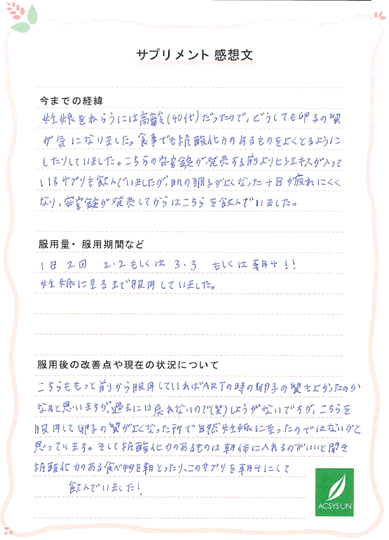 サプリメント 感想文
今までの経緯
妊娠をねらうには高齢(40代)だったので、どうしても卵子の質
が気になりました。食事でも抗酸化力のあるものをよくとるように
したりしていました。こちらの が発売する前よりヒシエキスが入って
いるサプリも飲んでいましたが、肌の調子がよくなった+目が疲れにくく
なり、 が発売してからはこちらを飲んでいました。
服用量・服用期間など
1日2回 2・2もしくは3・3 もしくは朝4!!
妊娠に至るまで服用していました。
服用後の改善点や現在の状況について
こちらももっと前から服用していればARTの時の卵子の質もよかったのか
なぁと思いますが、過去には戻れないので(笑)しょうがないですが、こちらを
服用して卵子の質がよくなった所で自然妊娠に至ったのではないかと
思っています。そして抗酸化力のあるものは朝体に入れるのがいいと聞き
抗酸化力のある食べ物を朝とったり、このサプリを朝4にして
飲んでいました!
ACSYSUN